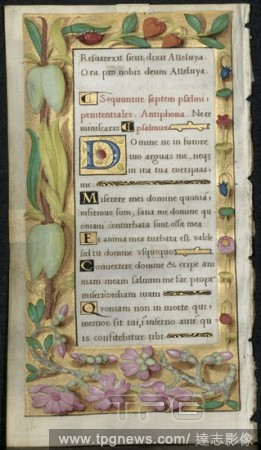 Resurrexit sicut dixit Alleluya.
Ora pro nobis deum Alleluya.
Sequuntur septem psalmi
penitentiales. Antiphona. Ne
miniscaris psalmus
Domine ne in furore
tuo arguas me, neq3
in ira tua corripias
me.
Miserere mei domine quonia
infirmus sum, sana me domine qu
oniam conturbata sunt ossa mea
Et anima mea turbata est valde
sed tu domine usquequo
Convertere domine & eripe ani
mam meam salvum me fac propt
misericordiam tuam
Quoniam non in morte qui
memor sit tui, inferno aute qu
is confitebitur tibi
TPG
www.tpgnews.com/ 達志影像